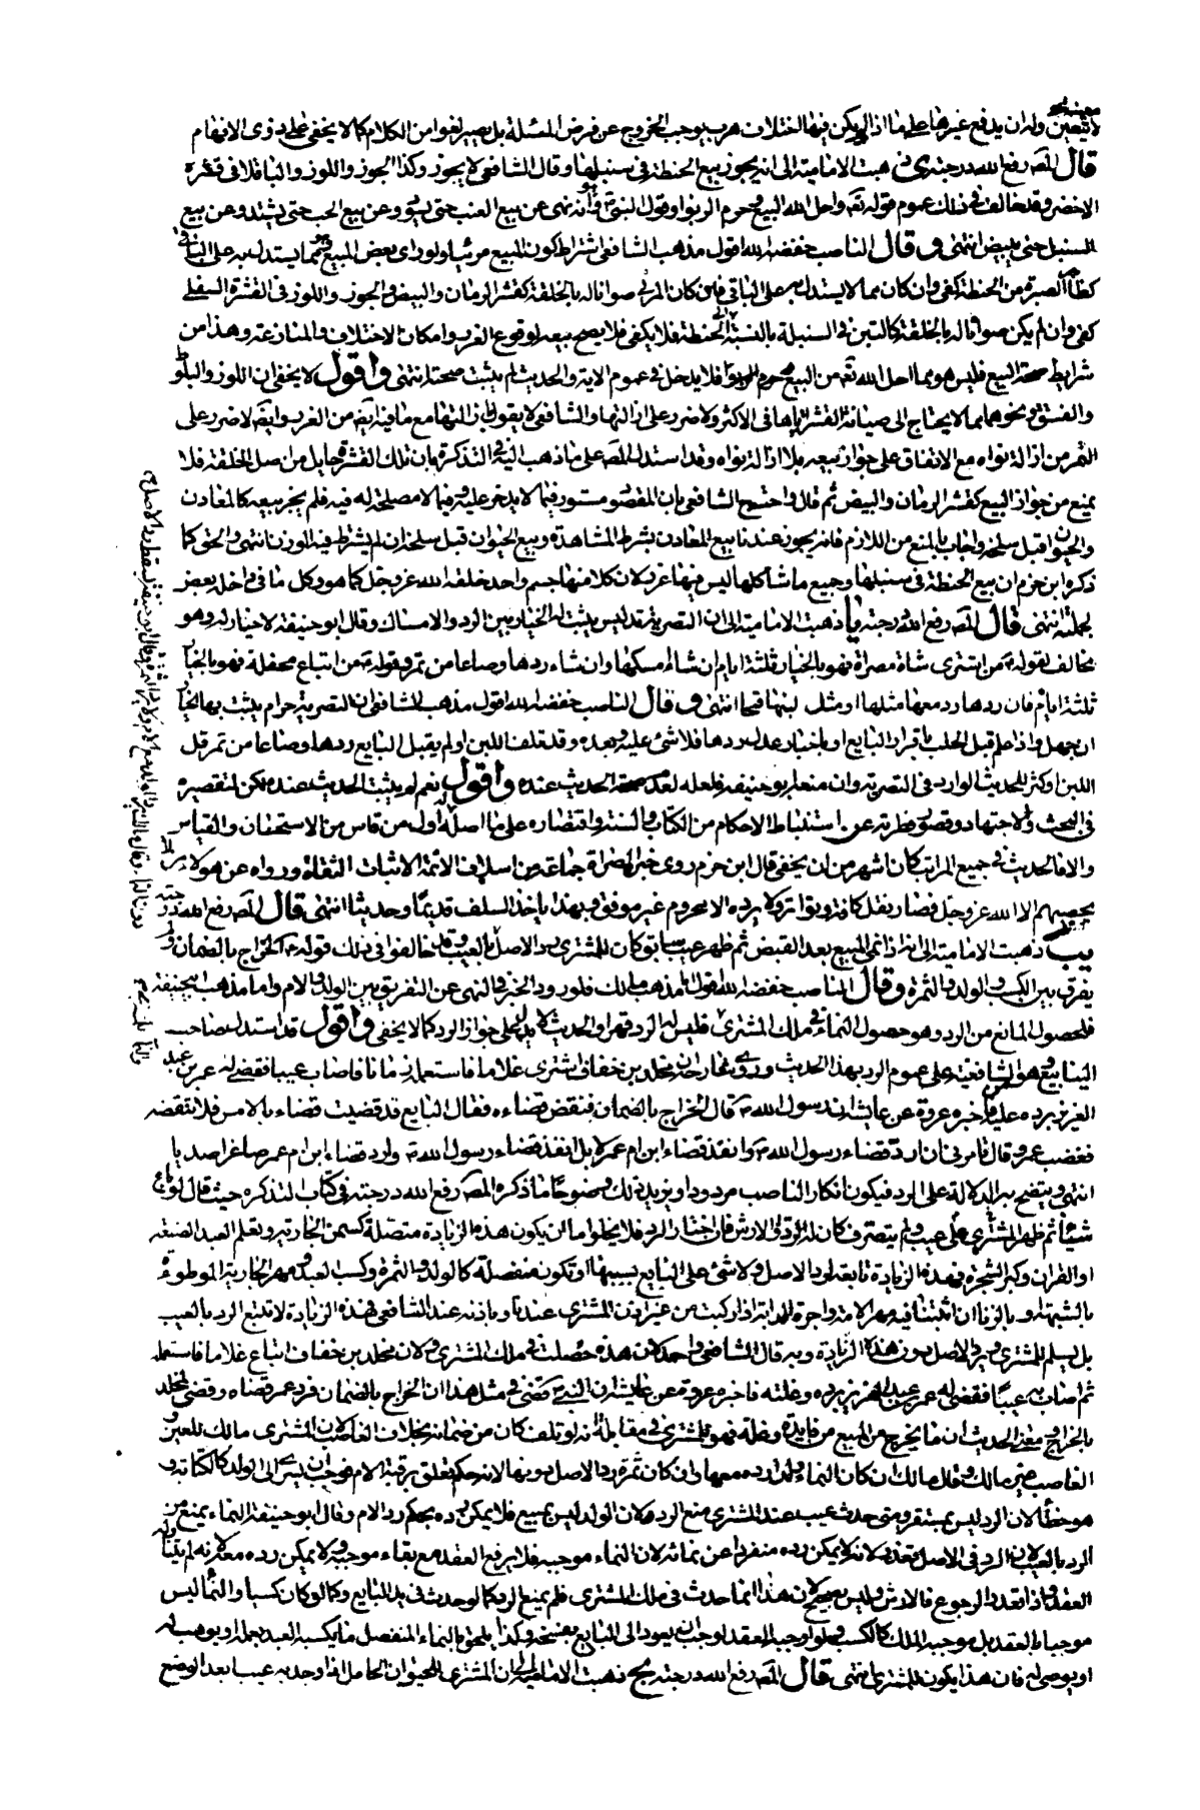 لا يتعين وله ان يدفع غيرها على ما اذا لم يكن فيها اختلاف هرب يوجب الخروج عن فرض المسئلة بل يصير لغوا من الكلام كما لا يخفى على ذوى الافهام
قال المصـ رفع الله درجته ى ذهبت الامامية الى انه يجوز بيع الحنطة في سنبلها وقال الشافعي لا يجوز وكذا الجوز واللوز والباقلا في قشره
الاخضر وقد خالف في ذلك عموم قوله تعـ واحل الله البيع وحرم الربوا وقول النبي انه نهى عن بيع العنب حتى يسود وعن بيع الحب حتى يشتد وعن بيع
السنبل حتى يبيض انتهى وقال الناصب خفضه الله اقول مذهب الشافعي اشتراط كون المبيع مرئيا ولو راى بعض المبيع مما يستدل به على الباقي
كظاهر الصبرة من الحنطة كفى وان كان مما لا يستدل به على الباقي فان كان المرئي صوانا له بالخلقة كقشر الرمان والبيض والجوز واللوز في القشرة السفلى
كفى وان لم يكن صوانا له بالخلقة كالتبن في السنبلة بالنسبة الى الحنطة فلا يكفى فلا يصح بيعه لوقوع الغرر وامكان الاختلاف والمنازعة وهذا من
شرايط صحة البيع فليس هو مما احل الله تعـ من البيع وحرم الربوا فلا يدخل في عموم الاية والحديث لم يثبت صحته انتهى واقول لا يخفى ان اللوز والبلوط
والفستق ونحوهما مما لا يحتاج الى صيانة القشر اياها في الاكثر ولا ضرر على ازالتها والشافعي لا يقول بازالتها مع ما فيه ايضـ من الغرر وايضـ لا ضرر على
التمر من ازالة نواه مع الاتفاق على جواز بيعه بلا ازالة نواه وقد استدل المصـ على ما ذهب اليه في التذكرة بان تلك القشرة حايل من اصل الخلقة فلا
يمنع من جواز البيع كقشر الرمان والبيض ثم قال واحتج الشافعي بان المقصود مستور فيما لا يدخر عليه وفيما لا مصلحة له فيه فلم يجز بيعه كالمعادن
والحيوان قبل سلخه واجاب بالمنع من اللازم فانه يجوز عندنا بيع المعادن بشرط المشاهدة وبيع الحيوان قبل سلخه ان لم يشترط فيه الوزن انتهى والحق كما
ذكره ابن حزم ان بيع الحنطة في سنبلها وجميع ما شاكلها ليس فيها غرر لان كلا منها جسم واحد خلقه الله عز وجل كما هو وكل ما في داخله بعض
لجملته انتهى قال المصـ رفع الله درجته يا ذهبت الامامية الى ان التصرية تدليس يثبت له الخيار بين الرد والامساك وقال ابو حنيفة لا خيار له وهو
مخالف لقوله من اشترى شاة مصراة فهو بالخيار ثلثة ايام ان شاء امسكها وان شاء ردها وصاعا من تمر وقوله من ابتاع محفلة فهو بالخيار
ثلثة ايام فان ردها رد معها مثلها او مثل لبنها قمحا انتهى وقال الناصب خفضه الله اقول مذهب الشافعي ان التصرية حرام يثبت بها الخيار
ان جهل واذا علم قبل الحلب باقرار البايع او باخبار عدل ردها فلا شئ عليه وبعده وقد تلف اللبن او لم يقبل البايع ردها وصاعا من تمر قل
اللبن او كثر للحديث الوارد في التصرية وان منعه ابو حنيفة فلعله لعدم صحة الحديث عنده واقول نعم لم يثبت الحديث عنده لكن لتقصيره
في البحث والاجتهاد وقصور نظره عن استنباط الاحكام من الكتاب والسنة واقتصاره على ما اصله اول من قاس من الاستحسان والقياس
والا فالحديث في جميع المراتب كان اشهر من ان يخفى قال ابن حزم روى خبر المصراة جماعة من اسلاف الائمة الاثبات الثقاة ورواه عن هؤلاء من لا
يحصيهم الا الله عز وجل فصار نقل كافة وتواتر ولا يرده الا محروم غير موفق وبهذا ياخذ السلف قديما وحديثا انتهى قال المصـ رفع الله درجته
يب ذهبت الامامية الى انه اذا نمى المبيع بعد القبض ثم ظهر عيب سابق كان للمشتري رد الاصل بالعيب وقد خالفوا في ذلك قوله الخراج بالضمان ولم
يفرق بين الكسب والولد والثمرة وقال الناصب خفضه الله اقول مذهب مالك فلورود الخبر في النهي عن التفريق بين الولد والام واما مذهب ابيحنيفة
فلحصول المانع من الرد وهو حصول النماء في ملك المشترى فليس له الرد قهرا والحديث لا يدل على جواز الرد كما لا يخفى واقول قد استدل صاحب
الينابيع وهو للشافعية على عموم الرد بهذا الحديث وروى بخارى ان مخلد بن خفاف اشترى غلاما فاستعمله زمانا فاصاب عيبا فقضى له عمر بن عبد
العزيز برده عليه فاخبره عروة عن عايشة ان رسول الله قال الخراج بالضمان فنقض قضاءه فقال البايع قد قضيت قضاء بالامس فلا تنقضه
فغضب عمر وقال تامرنى ان ارد قضاء رسول الله وانفذ قضاء ابن ام عمر لا بل انفذ قضاء رسول الله وارد قضاء ابن ام عمر صاغرا صديا
انتهى ويتضح به الدلالة على الرد فيكون انكار الناصب مردودا ويزيد ذلك وضوحا ما ذكره المصـ رفع الله درجته في كتاب التذكرة حيث قال لو باع
شيئا ثم ظهر المشترى على عيب ولم يتصرف كان له الرد او الارش فان اختار الرد فلا يخلوا اما ان يكون هذه الزيادة متصلة كسمن الجارية وتعلم العبد الصنعة
او القران وكبر الشجرة فهذه الزيادة تابعة لرد الاصل ولا شئ على البايع بسببها او تكون منفصلة كالولد والثمرة وكسب العبد ومهر الجارية الموطوءة
بالشبهة او بالزنا ان اثبتنا فيه مهر الامة واجرة الدابة اذا ركبت من غير اذن المشترى عندنا وباذنه عند الشافعي فهذه الزيادة لا تمنع الرد بالعيب
بل يسلم للمشترى ويرد الاصل دون هذه الزيادة وبه قال الشافعي واحمد لان هذه حصلت في ملك المشترى ولان مخلد بن خفاف ابتاع غلاما فاستغله
ثم اصاب به عيبا فقضى له عمر بن عبد العزيز برده وغلته فاخبره عروة عن عايشة ان النبي قضى في مثل هذا ان الخراج بالضمان فرد عمر قضاه وقضى لمخلد
بالخراج ومعنى الحديث ان ما يخرج من المبيع من فايدة وغلة فهو للمشترى في مقابلة انه لو تلف كان من ضمانه بخلاف الغاصب لان المشترى مالك للعين و
الغاصب غير مالك وقال مالك ان كان النماء ولدا رده معها وان كان ثمرة رد الاصل دونها لان حكم تعلق برقبة الام فوجب ان يسرى الى الولد كالكتابة و
هو خطأ لان الرد ليس بمستقر ومتى حدث عيب عند المشترى منع الرد ولان الولد ليس بمبيع فلا يمكن رده بحكم رد الام وقال ابو حنيفة النماء يمنع من
الرد بالعيب لان الرد في الاصل تعذر لانه لا يمكن رده منفردا عن نمائه لان النماء موجبه فلا يرفع العقد مع بقاء موجبه ولا يمكن رده معه لانه لم يتناوله
العقد واذا تعذر الرجوع فالارش وليس بصحيح لان هذا انما حدث في ملك المشترى فلم يمنع الرد كما لو حدث في يد البايع وكما لو كان كسبا والنما ليس
موجبا بالعقد بل موجبه الملك كالكسب ولو اوجبه العقد لوجب ان يعود الى البايع بفسخه وكذا يلحق بالنماء المنفصل ما يكسبه العبد بعمله او يوهب له
او يوصى له فان هذا يكون للمشترى انتهى قال المصـ رفع الله درجته يج ذهبت الامامية الى ان المشترى للحيوان الحامل اذا وجد به عيبا بعد الوضع